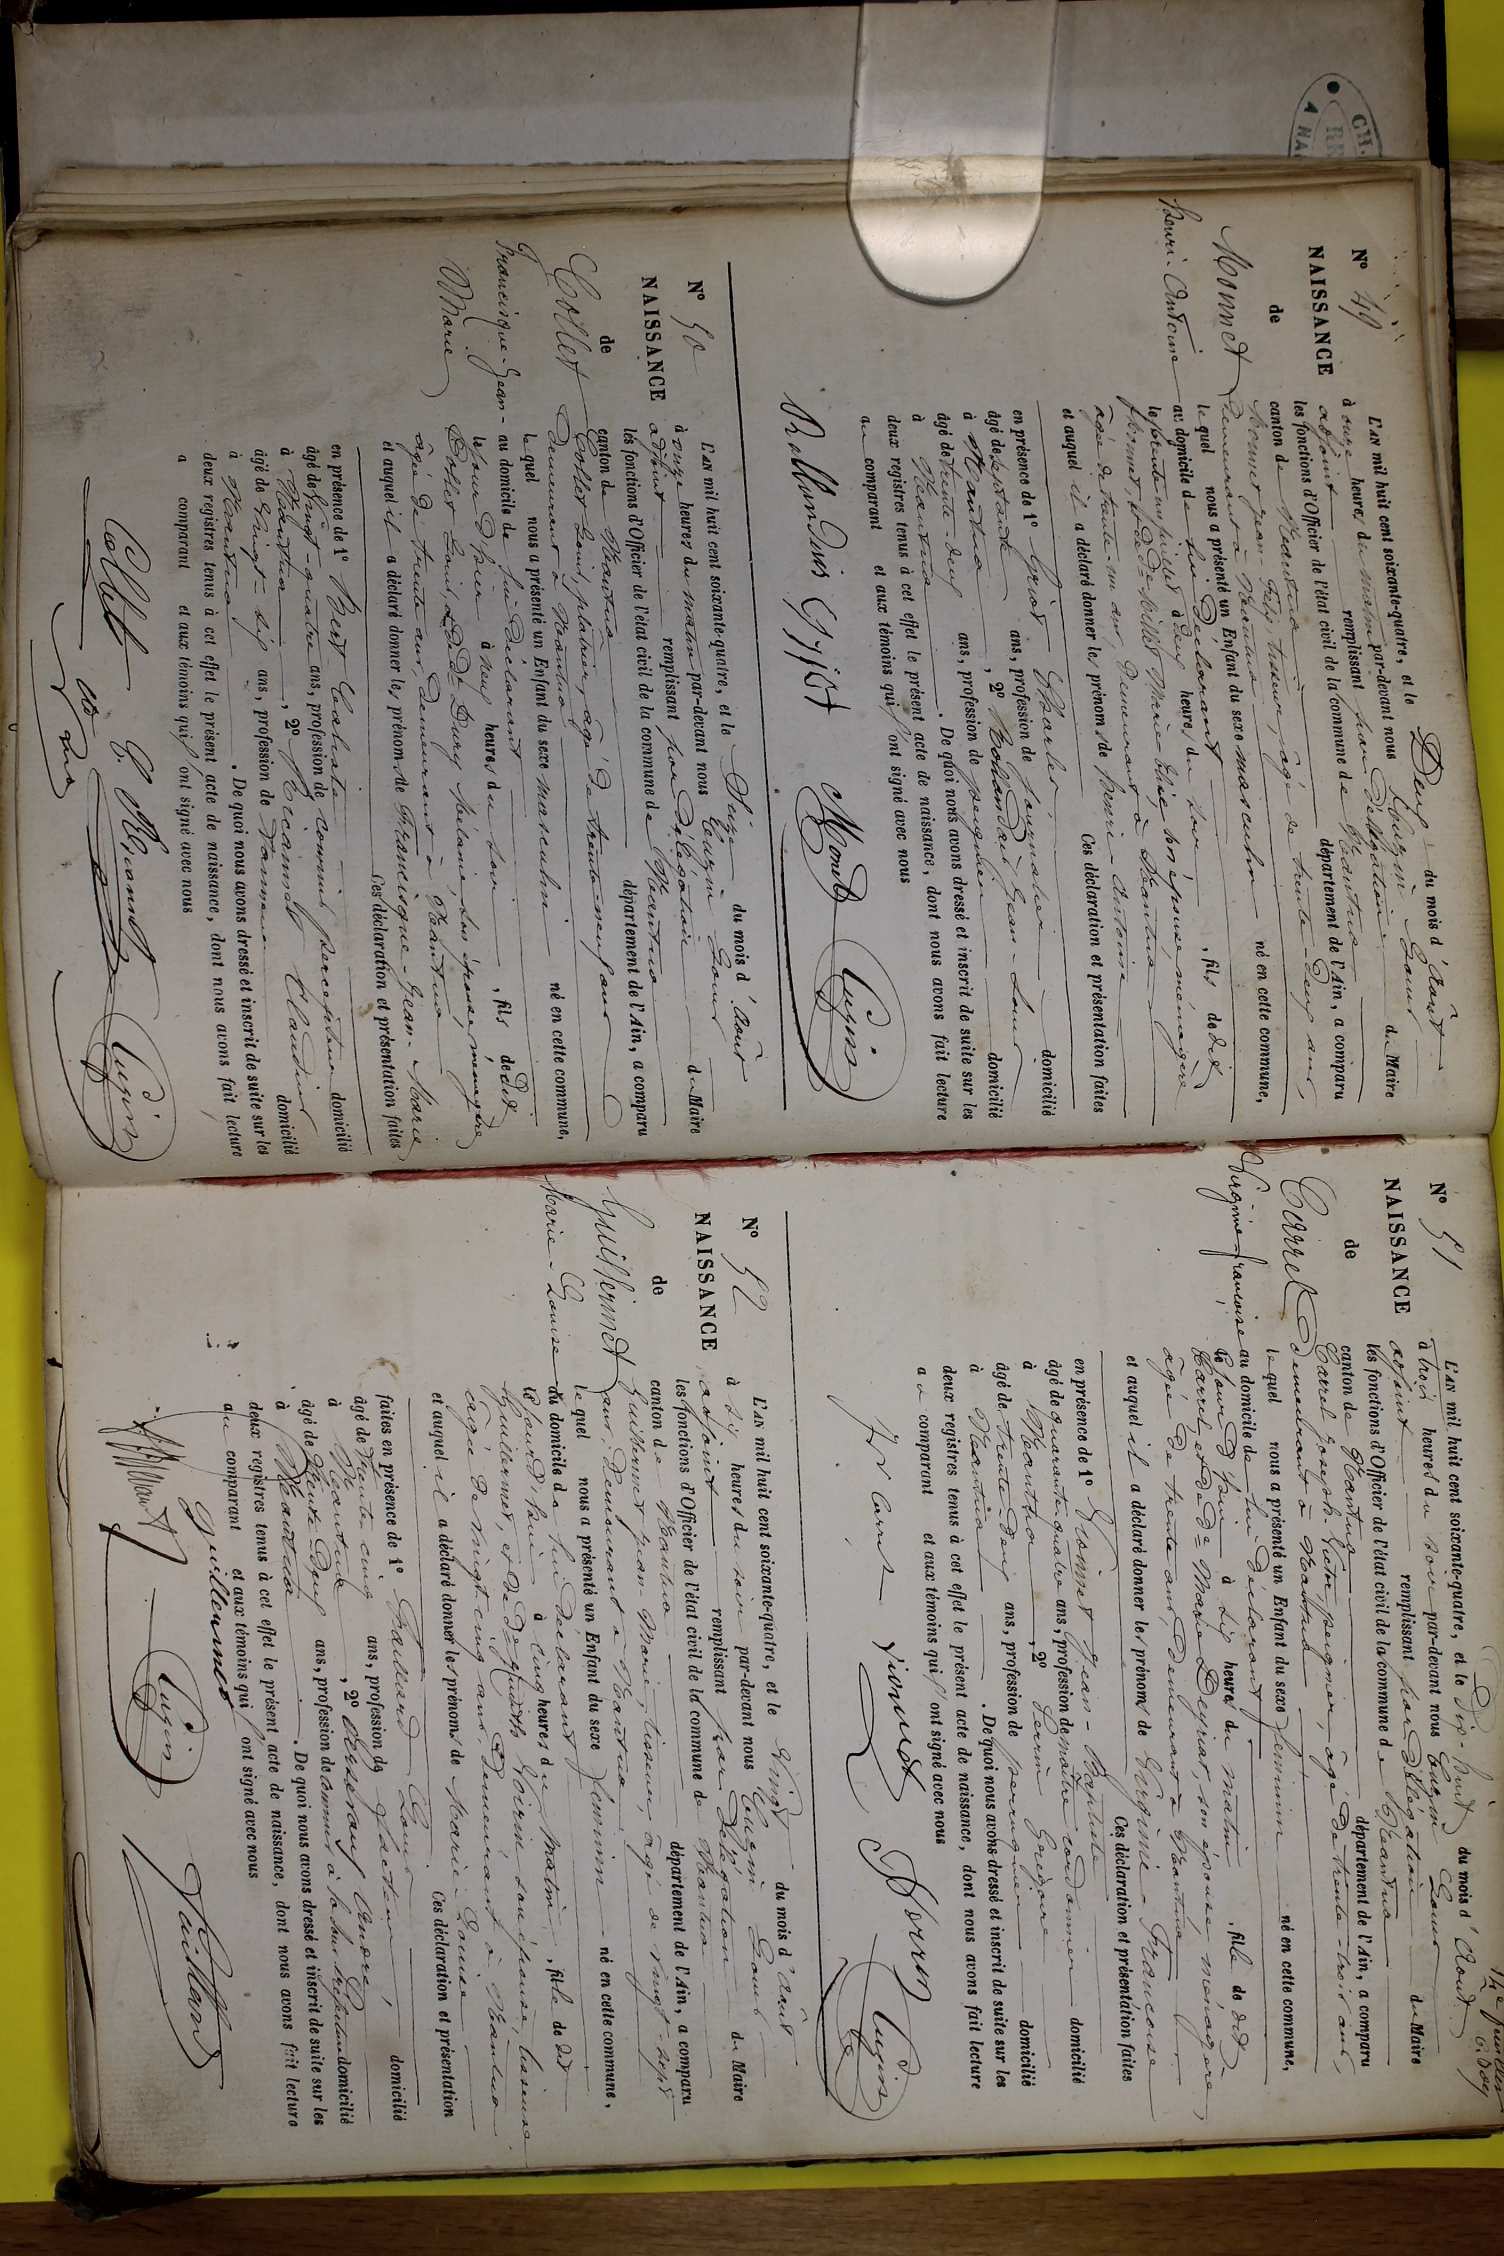 N° 49
NAISSANCE
de
Monnet
Henri-Antoine
L'AN mil huit cent soixante-quatre, et le Deux du mois d'Août
à onze heures du matin par-devant nous Cuzin Louis
adjoint remplissant par délégation du Maire
les fonctions d'Officier de l'état civil de la commune de Nantua
canton de Nantua département de l'Ain, a comparu
Monnet Jean- tisseur, âgé de trente-deux ans,
demeurant à Nantua
lequel nous a présenté un Enfant du sexe masculin né en cette commune,
au domicile de lui déclarant
le trente un juillet à deux heures du soir, fils de dit
Monnet, & de Marie son épouse, ménagère
âgée de trente un ans, demeurant à Nantua
et auquel il a déclaré donner les prénoms de Henri-Antoine
Ces déclaration et présentation faites
en présence de 1° Charles,
âgé de septante ans, profession de journalier domicilié
à Nantua, 2° Rollandais Jean-Louis
âgé de trente-deux ans, profession de domicilié
à Nantua. De quoi nous avons dressé et inscrit de suite sur les
deux registres tenus à cet effet le présent acte de naissance, dont nous avons fait lecture
au comparant et aux témoins qui ont signé avec nous
Monet Cuzin
N° 50
NAISSANCE
de
Collet
Francisque-Jean-
Marie
L'AN mil huit cent soixante-quatre, et le Seize du mois d'Août
à onze heures du matin par-devant nous Cuzin Louis
adjoint remplissant par délégation du Maire
les fonctions d'Officier de l'état civil de la commune de Nantua
canton de Nantua département de l'Ain, a comparu
Collet Louis, plâtrier, âgé de trente-neuf ans
demeurant à Nantua
lequel nous a présenté un Enfant du sexe masculin né en cette commune,
au domicile de lui déclarant
le jour d'hier à neuf heures du soir, fils de dit
Collet Louis, & de Dme Dury Mélanie, son épouse, ménagère
âgée de trente ans, demeurant à Nantua
et auquel il a déclaré donner les prénoms de Francisque-Jean-Marie
Ces déclaration et présentation faites
en présence de 1° Bert
âgé de vingt-quatre ans, profession de commis percepteur domicilié
à Nantua, 2° Claudius
âgé de vingt-six ans, profession de domicilié
à Nantua. De quoi nous avons dressé et inscrit de suite sur les
deux registres tenus à cet effet le présent acte de naissance, dont nous avons fait lecture
a comparant et aux témoins qui ont signé avec nous
Collet Cuzin
N° 51
NAISSANCE
de
Carrel
Virginie-Françoise
L'AN mil huit cent soixante-quatre, et le Dix-huit du mois d'Août
à trois heures du soir par-devant nous Cuzin Louis
adjoint remplissant par délégation du Maire
les fonctions d'Officier de l'état civil de la commune de Nantua
canton de Nantua département de l'Ain, a comparu
Carrel Joseph-Victor, peigneur, âgé de trente-trois ans,
demeurant à Nantua
lequel nous a présenté un Enfant du sexe féminin né en cette commune,
au domicile de lui déclarant
le jour d'hier à dix heures du matin, fille de dit
Carrel, et de Dme Maria Deyriat, son épouse, ménagère,
âgée de trente ans, demeurant à Nantua
et auquel il a déclaré donner les prénoms de Virginie-Françoise
Ces déclaration et présentation faites
en présence de 1° Vionnet Jean-Baptiste
âgé de quarante quatre ans, profession de maître cordonnier domicilié
à Nantua, 2° Perrin Grégoire
âgé de trente-deux ans, profession de perruquier domicilié
à Nantua. De quoi nous avons dressé et inscrit de suite sur les
deux registres tenus à cet effet le présent acte de naissance, dont nous avons fait lecture
au comparant et aux témoins qui ont signé avec nous
Vionnet Perrin Cuzin
N° 52
NAISSANCE
de
Guillermet
Marie-Louise
L'AN mil huit cent soixante-quatre, et le vingt du mois d'Août
à dix heures du soir par-devant nous Cuzin Louis
adjoint remplissant par délégation du Maire
les fonctions d'Officier de l'état civil de la commune de Nantua
canton de Nantua département de l'Ain, a comparu
Guillermet Jean-Marie, tisseur, âgé de vingt-sept
ans, demeurant à Nantua
lequel nous a présenté un Enfant du sexe féminin né en cette commune,
au domicile de lui déclarant
le jour d'hui à cinq heures du matin, fille de dit
Guillermet, et de Dme Judith son épouse, tisseuse
âgée de vingt cinq ans, demeurant à Nantua
et auquel il a déclaré donner les prénoms de Marie-Louise
Ces déclaration et présentation
faites en présence de 1° Gaillard Louis
âgé de trente cinq ans, profession de facteur domicilié
à Nantua, 2° André
âgé de trente deux ans, profession de commis à la sous préfecture domicilié
à Nantua. De quoi nous avons dressé et inscrit de suite sur les
deux registres tenus à cet effet le présent acte de naissance, dont nous avons fait lecture
au comparant et aux témoins qui ont signé avec nous
Guillermet
Cuzin Gaillard